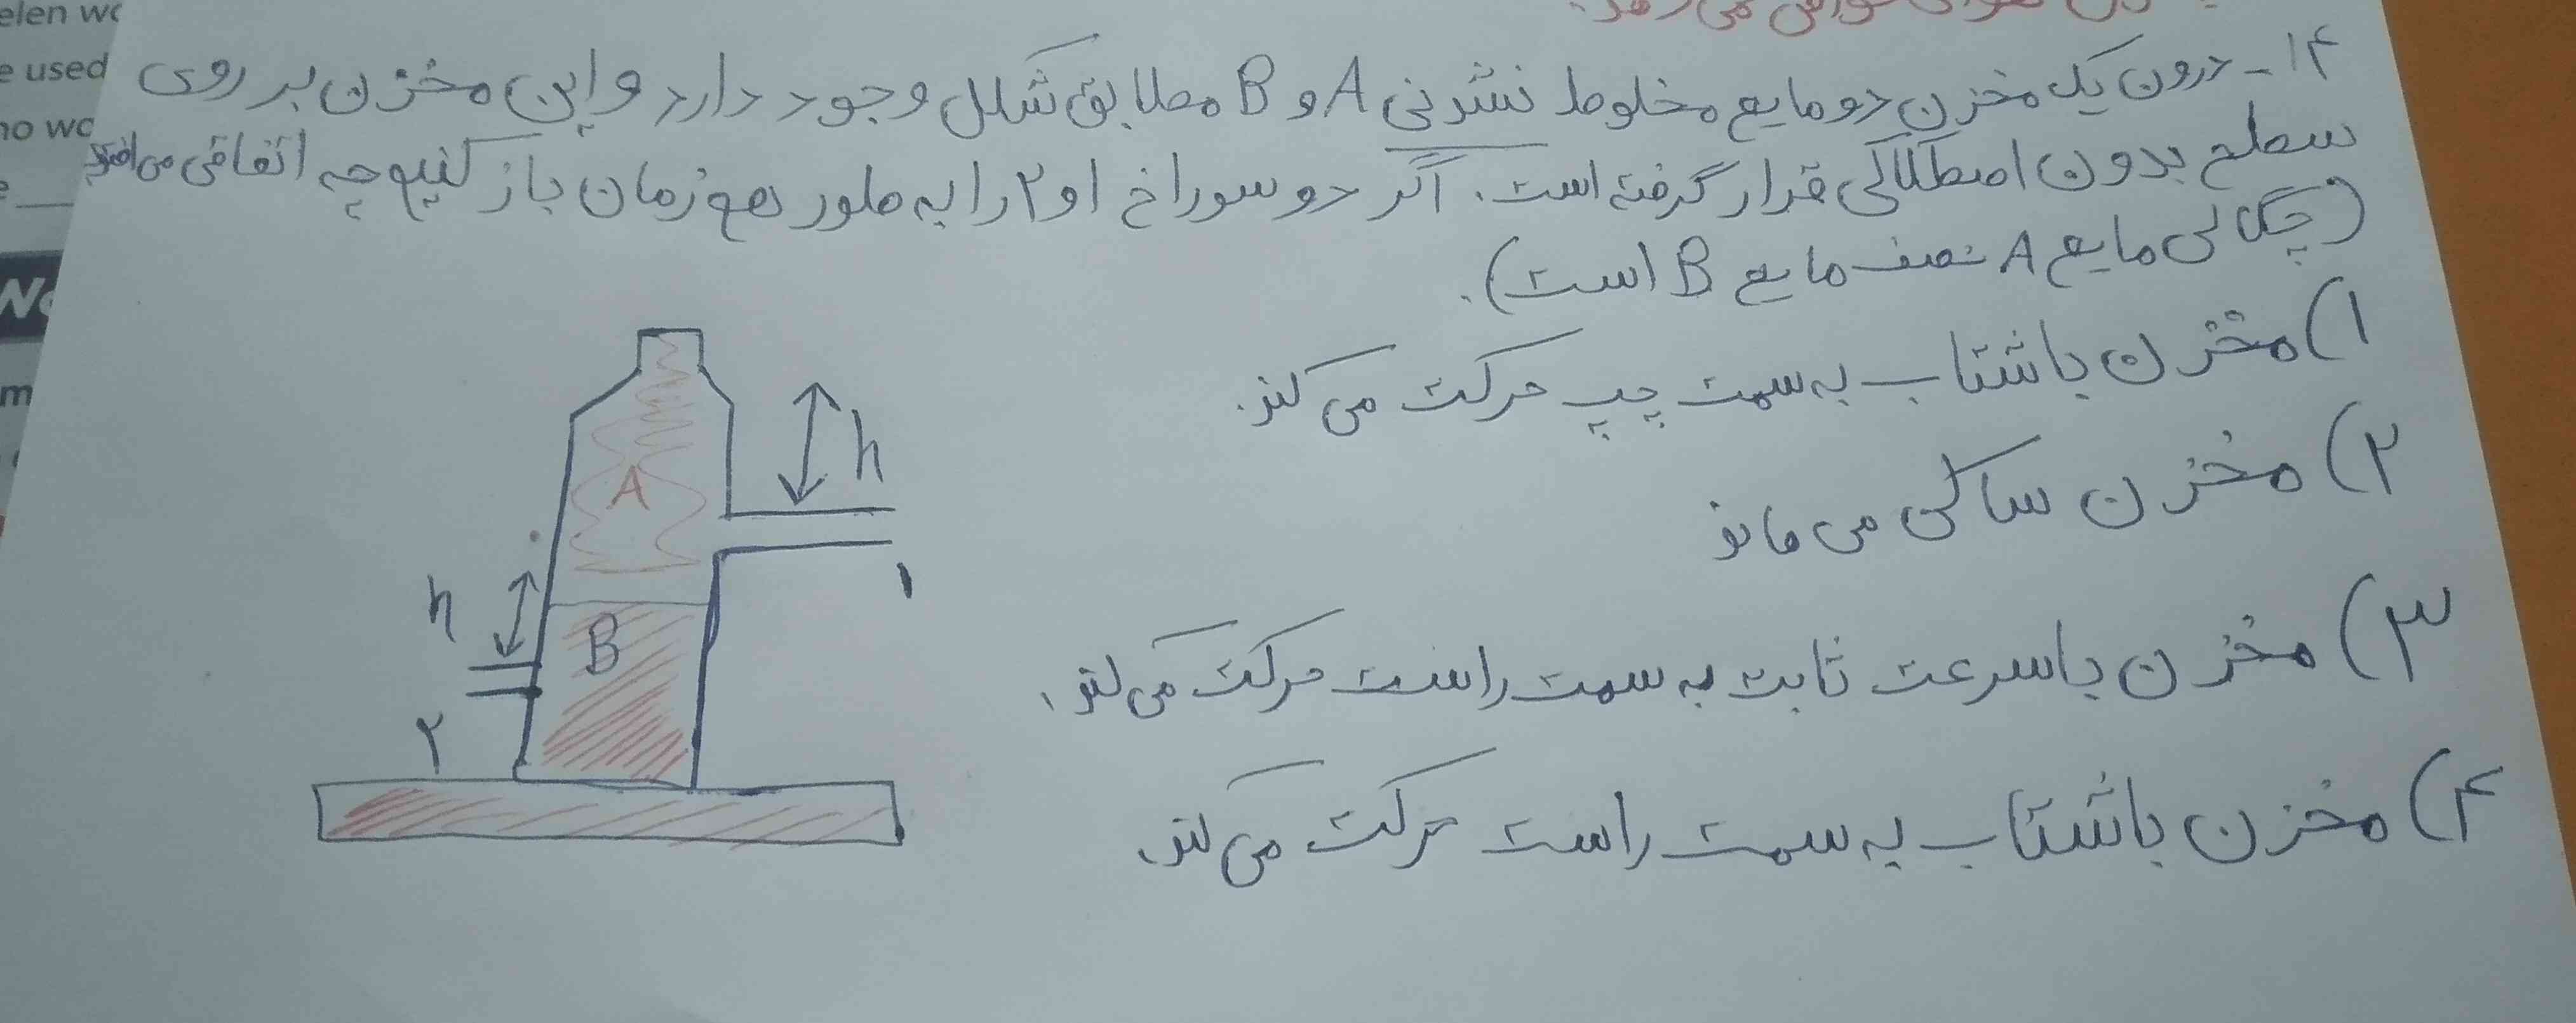 elen wo
e used
no wo
e
m
۱۴_ درون یک مخزن دو مایع مخلوط نشدنی A و B مطابق شکل وجود دارد و این مخزن بر روی
سطح بدون اصطکاکی قرار گرفته است. اگر دو سوراخ ۱ و ۲ را به طور هم زمان باز کنیم چه اتفاقی می افتد
(چگالی مایع A نصف مایع B است).
۱) مخزن با شتاب به سمت چپ حرکت می کند.
۲) مخزن ساکن می ماند
۳) مخزن با سرعت ثابت به سمت راست حرکت می کند.
۴) مخزن با شتاب به سمت راست حرکت می کند.
h
A
۱
h
B
۲